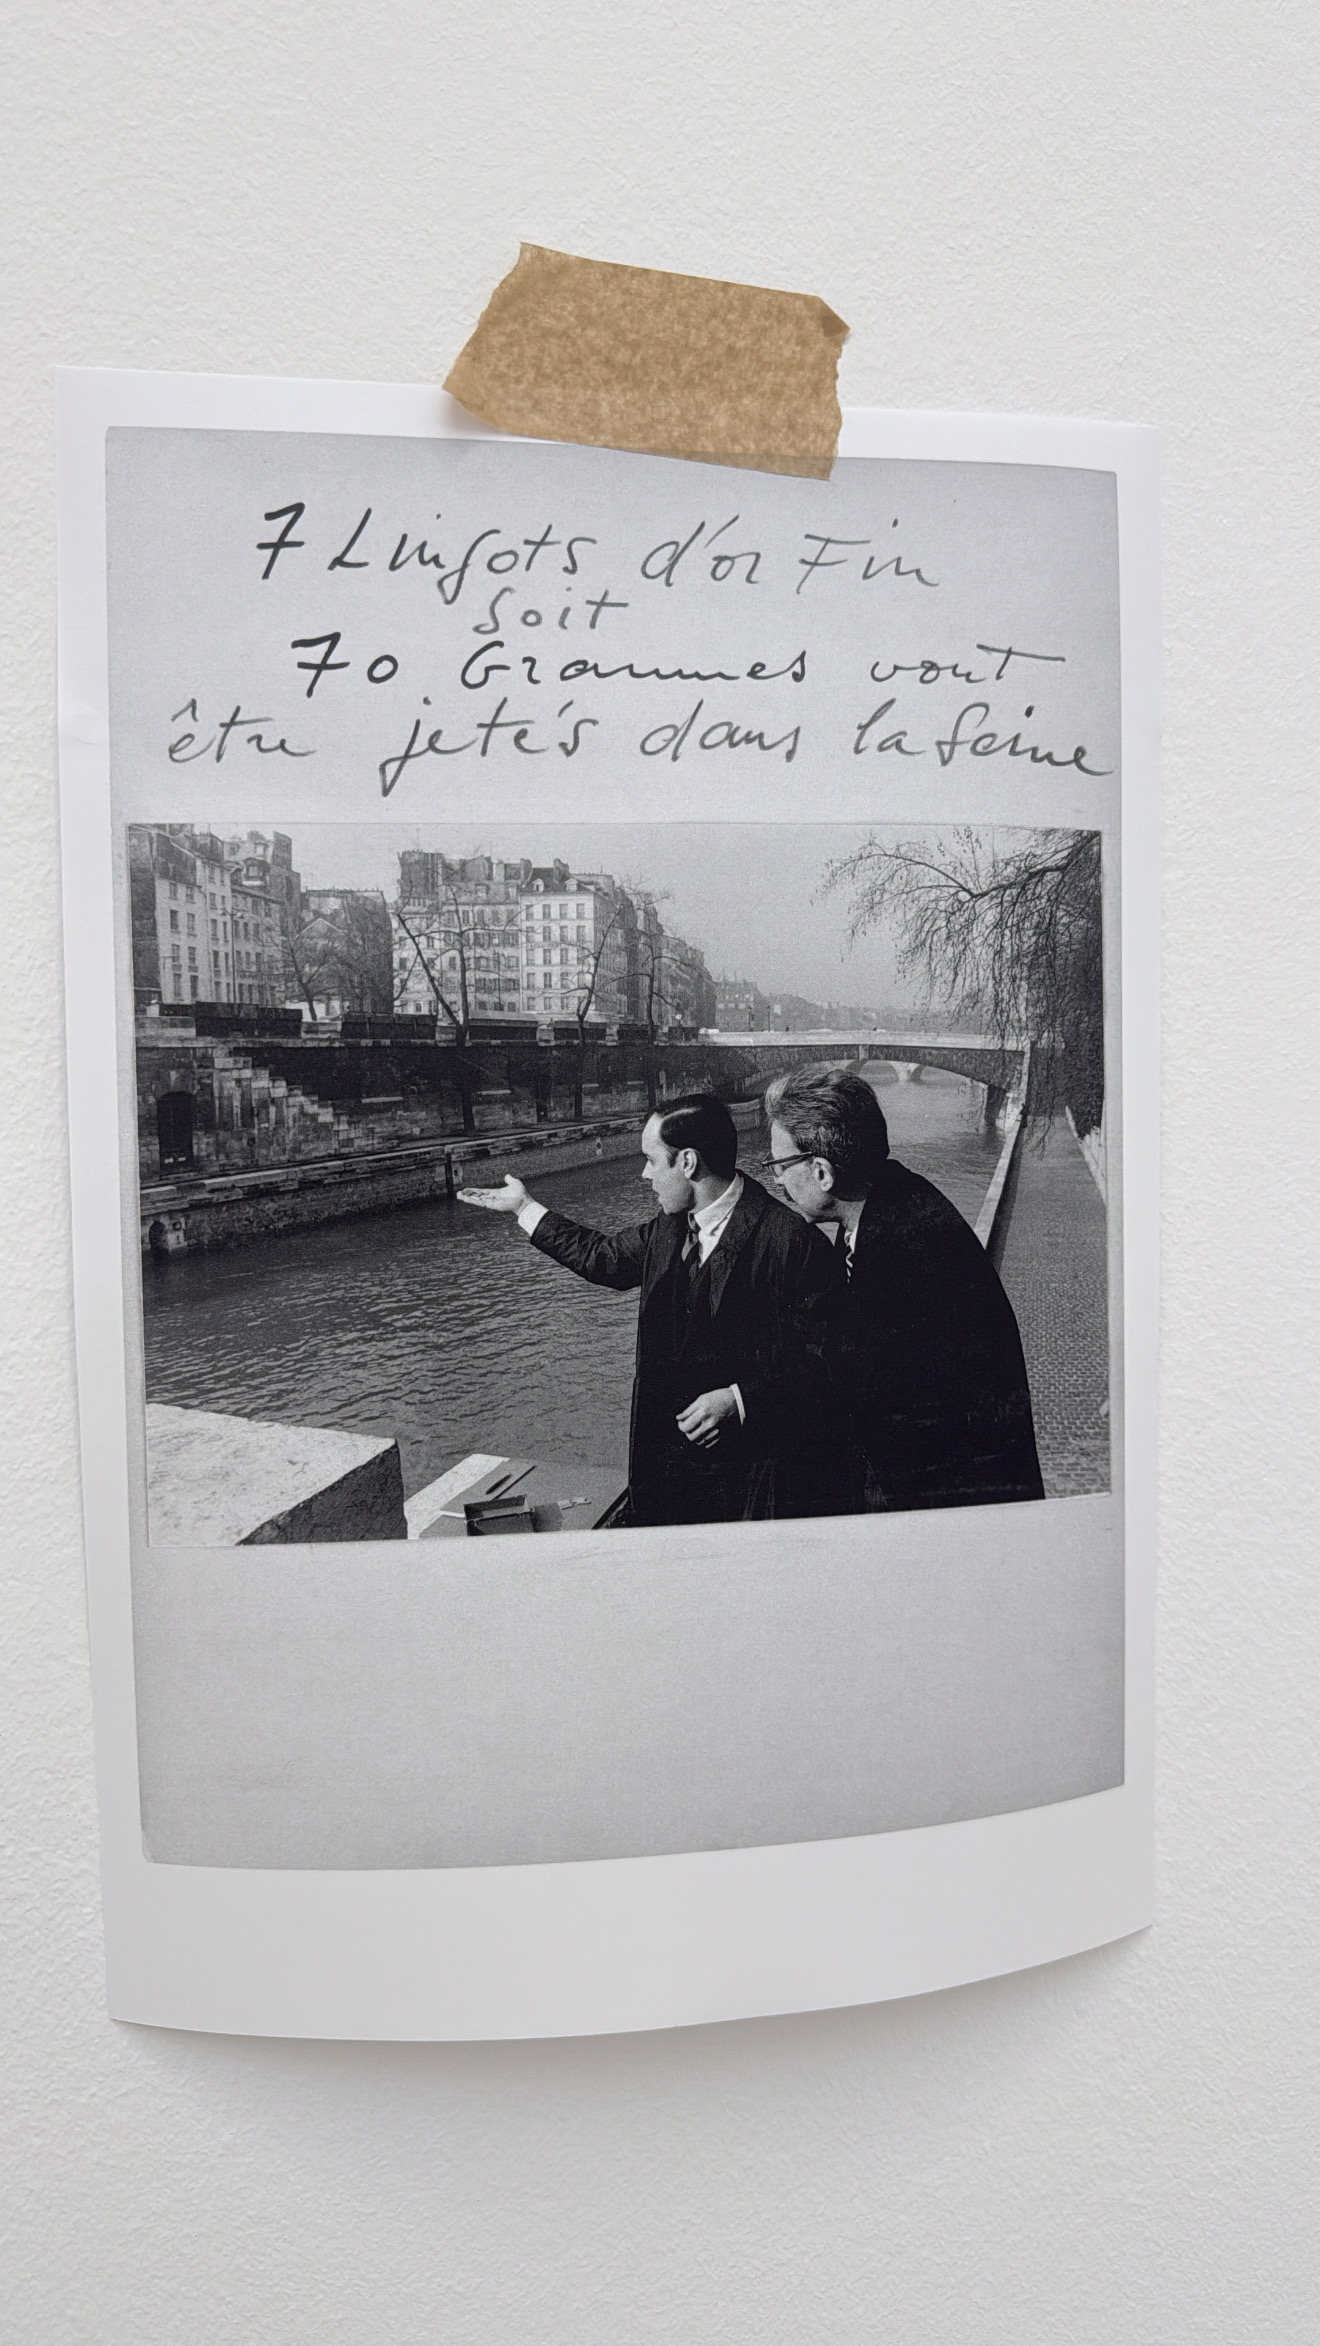 7 Lingots d'or Fin
soit
70 Grammes vont
être jetés dans la Seine